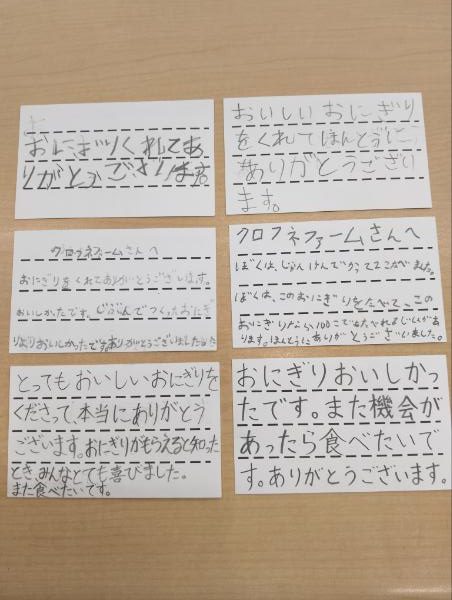 おにぎりくれてあ
りがとうございます
おいしいおにぎり
をくれてほんとうに
ありがとうござい
ます。
クロフネファームさんへ
おにぎりをくれてありがとうございます。
おいしかったです。じぶんでつくったおにぎ
りよりおいしかったです。ありがとうございました
クロフネファームさんへ
ぼくは、じゃんけんでかって2こたべました。
ぼくは、このおにぎりをたべて、この
おにぎりなら100こでもたべれるじしんがあ
ります。ほんとうにありがとうございました。
とってもおいしいおにぎりを
くださって、本当にありがとう
ございます。おにぎりがもらえると知った
ときみんなとても喜びました。
また食べたいです。
おにぎりおいしかっ
たです。また機会が
あったら食べたいで
す。ありがとうございます。